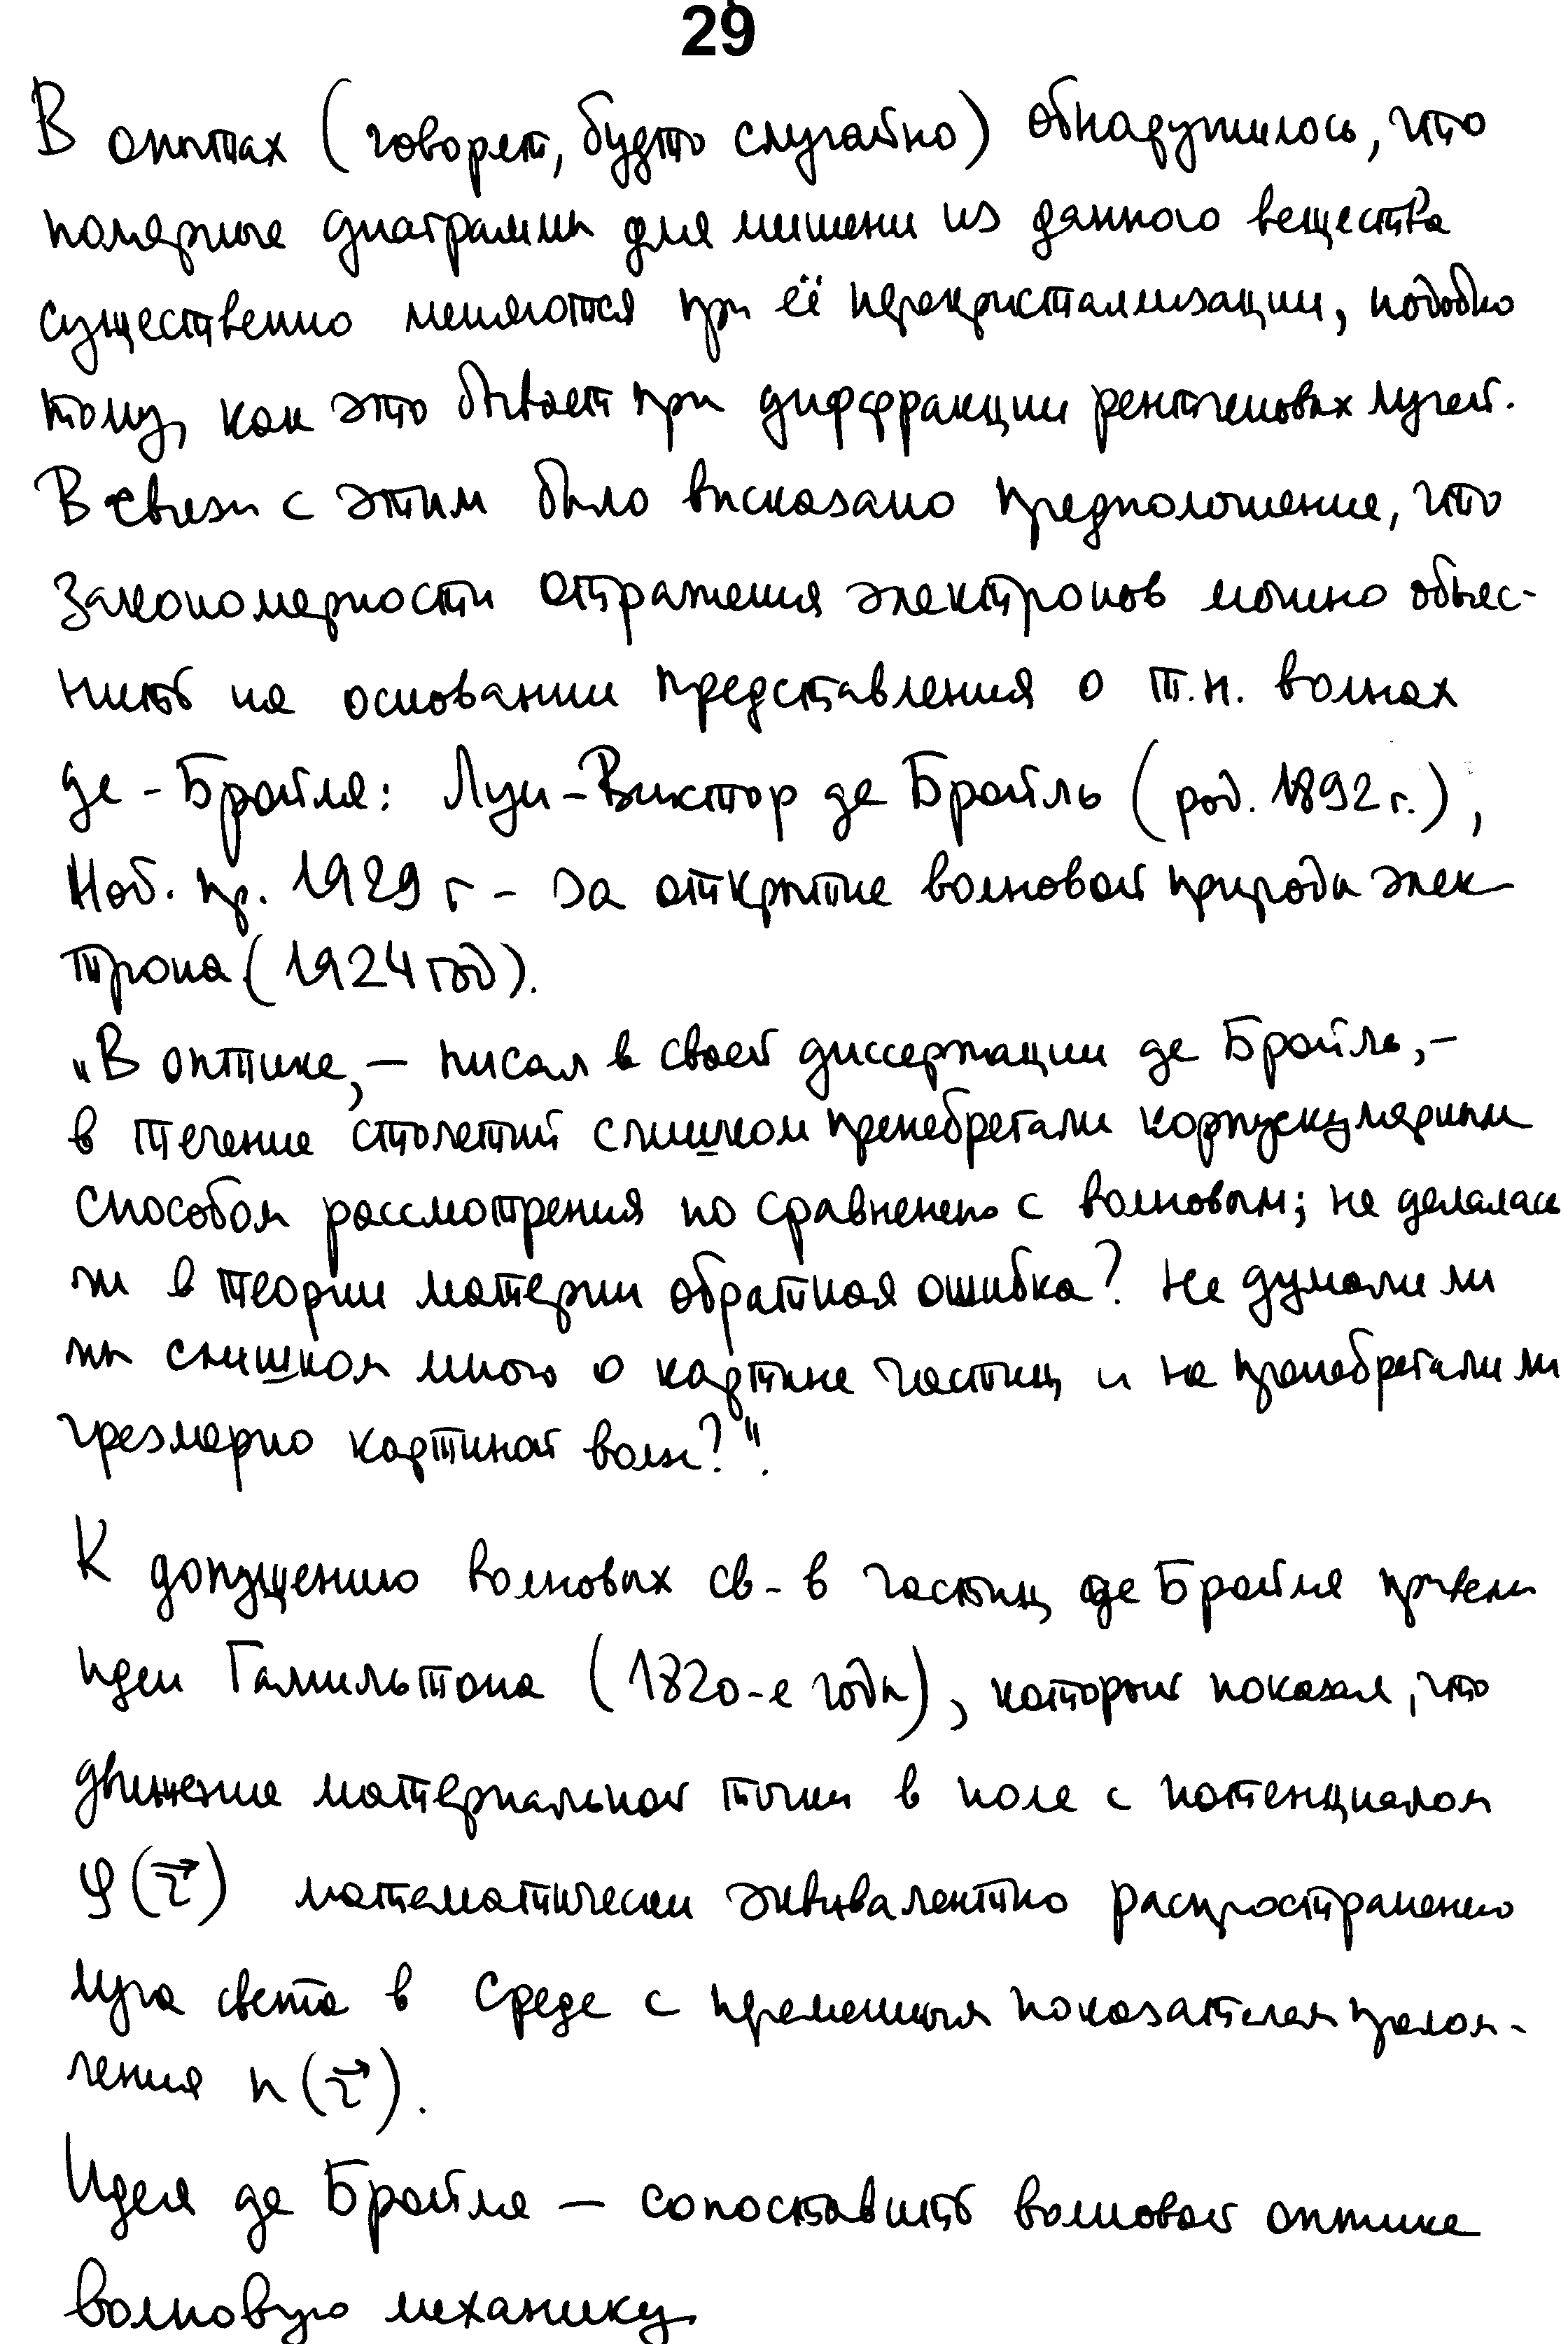 29
В опытах (говорят, будто случайно) обнаружилось, что
полярные диаграммы для мишени из данного вещества
существенно меняются при её перекристализации, подобно
тому, как это бывает при дифракции рентгеновых лучей.
В связи с этим было высказано предположение, что
закономерности отражения электронов можно объяс-
нить на основании представления о т.н. волнах
де-Бройля: Луи-Виктор де Бройль (род. 1892 г.),
Ноб. пр. 1929 г - за открытие волновой природы элек-
трона (1924 год).
„В оптике, — писал в своей диссертации де Бройль, —
в течение столетий слишком пренебрегали корпускулярным
способом рассмотрения по сравнению с волновым; не делалась
ли в теории материи обратная ошибка? Не думали ли
мы слишком много о картине частиц и не пренебрегали ли
чрезмерно картиной волн?".
К допущению волновых св-в частиц де Бройля привели
идеи Гамильтона (1820-е годы), который показал, что
движение материальной точки в поле с потенциалом
φ(r⃗) математически эквивалентно распространению
луча света в среде с переменным показателем прелом-
ления n(r⃗).
Идея де Бройля — сопоставить волновой оптике
волновую механику